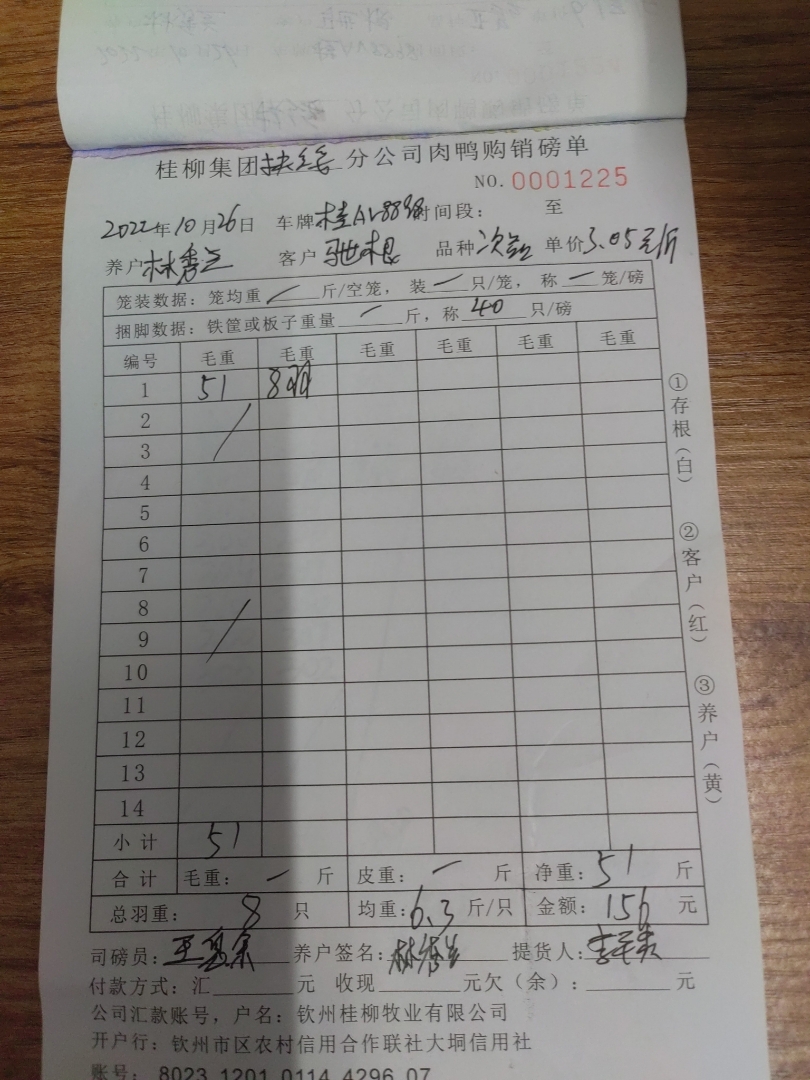 桂柳集团扶绥分公司肉鸭购销磅单
NO. 0001225
2022年10月26日 车牌桂A 时间段: 至
养户 林秀 客户 根 品种 次 单价3.05元/斤
笼装数据: 笼均重 / 斤/空笼, 装 一 只/笼, 称 一 笼/磅
捆脚数据: 铁筐或板子重量 一 斤, 称 40 只/磅
编号 毛重 毛重 毛重 毛重 毛重 毛重
1 51 8羽
2
3
4
5
6
7
8
9
10
11
12
13
14
小计 51
合计 毛重: 一 斤 皮重: 一 斤 净重: 51 斤
总羽重: 8 只 均重: 6.3 斤/只 金额: 156 元
司磅员: 养户签名: 林秀 提货人: 李
付款方式: 汇 元 收现 元欠(余): 元
公司汇款账号, 户名: 钦州桂柳牧业有限公司
开户行: 钦州市区农村信用合作联社大垌信用社
账号: 8023 1201 0114 4296 07
①存根(白)
②客户(红)
③养户(黄)